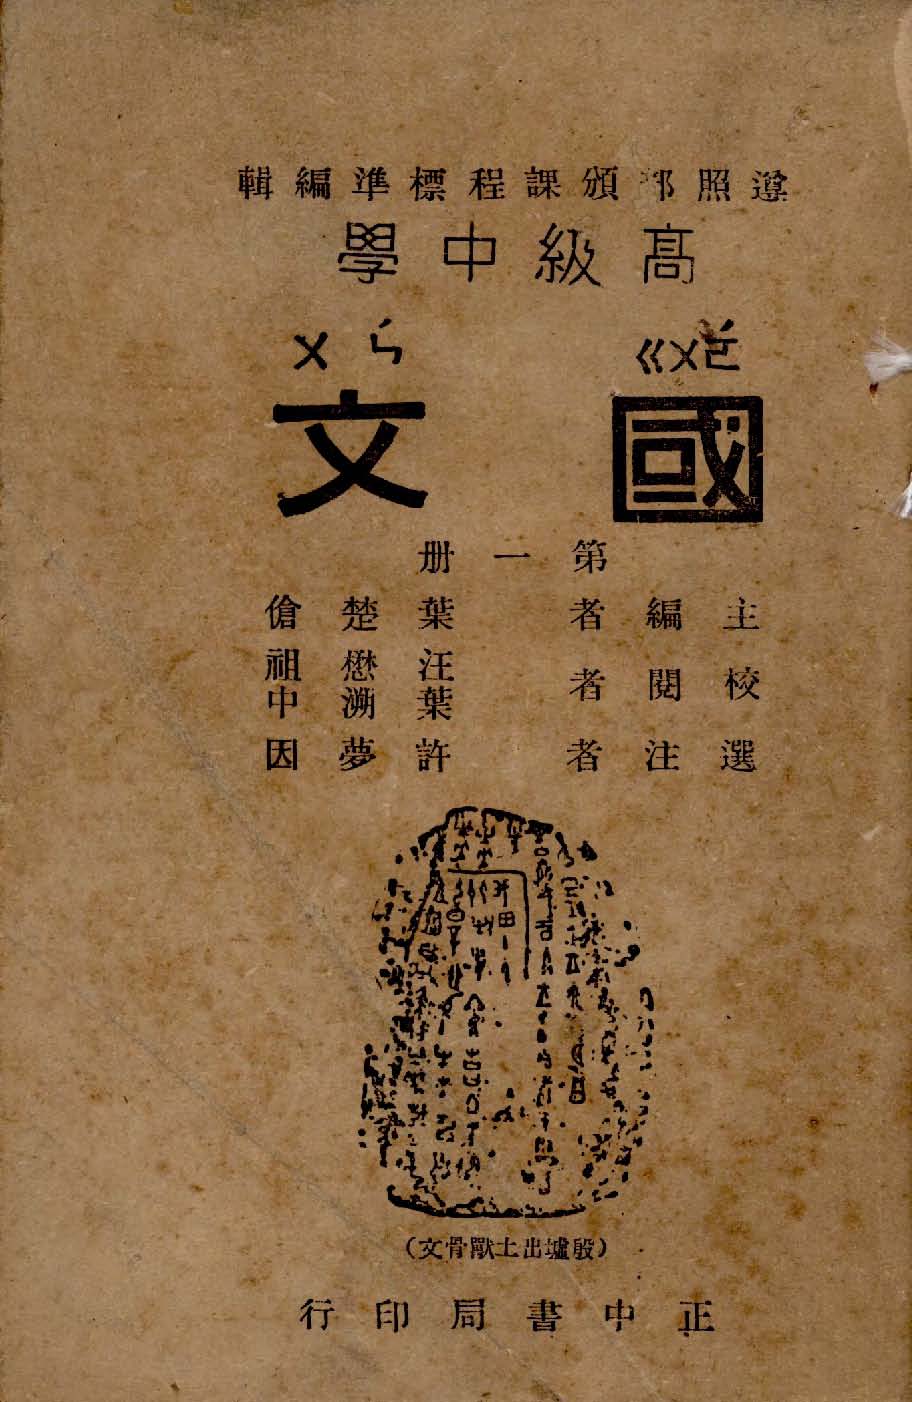 遵照部頒課程標準編輯
高級中學
ㄍㄨㄛˊ ㄨㄣˊ
國文
第一册
主編者 葉楚傖
校閱者 汪懋祖 葉溯中
選注者 許夢因
(殷墟出土獸骨文)
正中書局印行